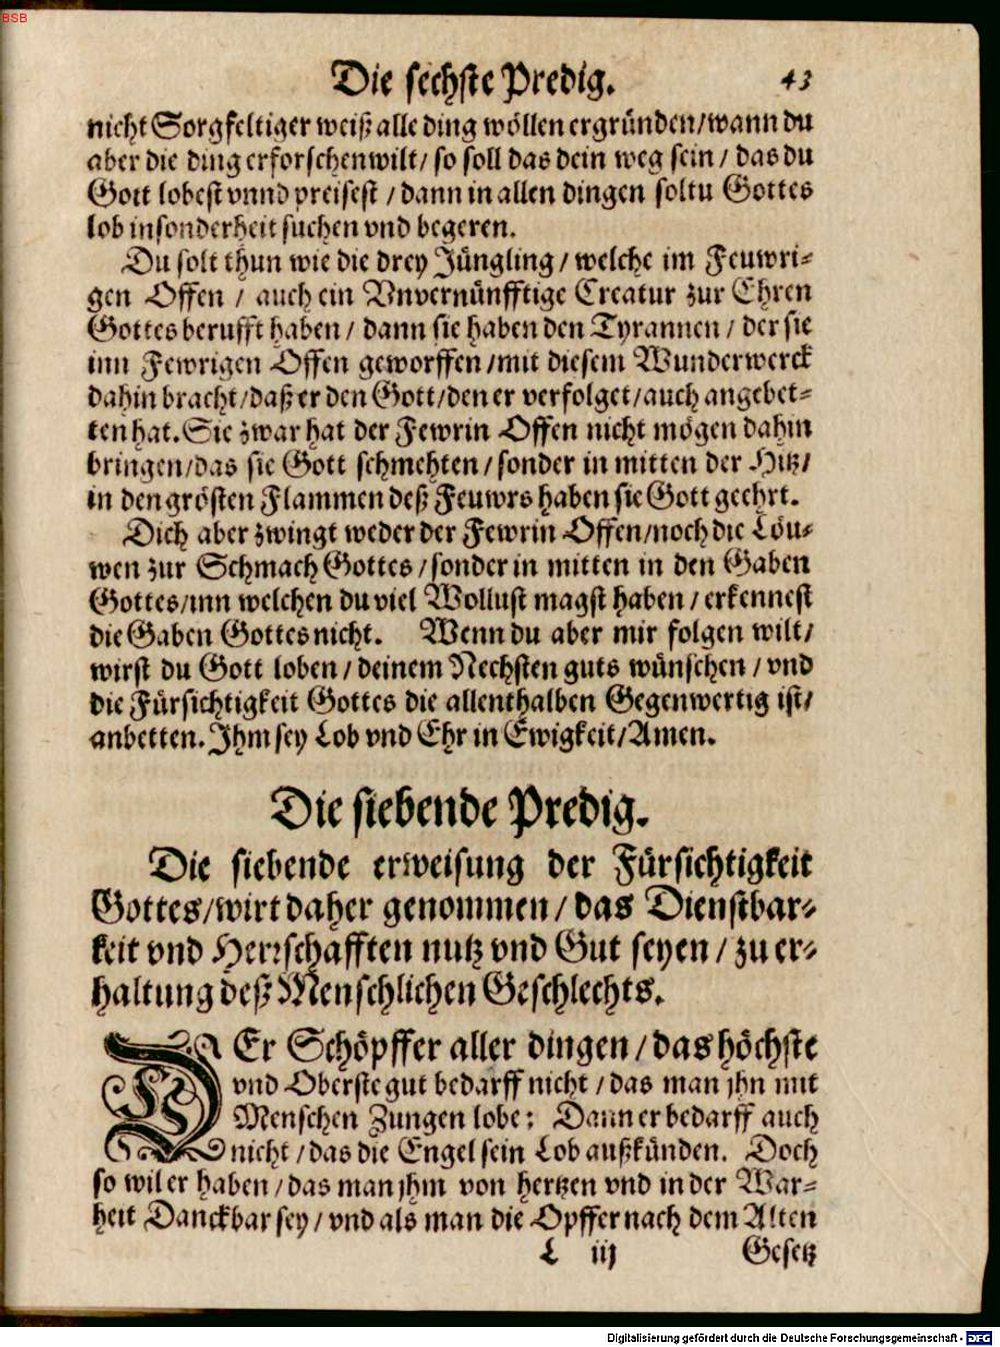 BSB
Die sechste Predig. 43
nicht Sorgfeltiger weiß alle ding wöllen ergründen/wann du
aber die ding erforschen wilt/ so soll das dein weg sein/ das du
Gott lobest vnnd preisest / dann in allen dingen soltu Gottes
lob insonderheit suchen vnd begeren.
Du solt thun wie die drey Jüngling/ welche im Feuwri-
gen Offen / auch ein Vnvernünfftige Creatur zur Ehren
Gottes berufft haben/ dann sie haben den Tyrannen/ der sie
inn Fewrigen Offen geworffen/mit diesem Wunderwerck
dahin bracht/daß er den Gott/den er verfolget/auch angebet-
ten hat. Sie zwar hat der Fewrin Offen nicht mögen dahin
bringen/das sie Gott schmehten/sonder in mitten der Hitz/
in den grösten Flammen deß Feuwrs haben sie Gott geehrt.
Dich aber zwingt weder der Fewrin Offen/noch die Löu-
wen zur Schmach Gottes/sonder in mitten in den Gaben
Gottes/inn welchen du viel Wollust magst haben/ erkennest
die Gaben Gottes nicht. Wenn du aber mir folgen wilt/
wirst du Gott loben/deinem Nechsten guts wünschen/vnd
die Fürsichtigkeit Gottes die allenthalben Gegenwertig ist/
anbetten. Ihm sey Lob vnd Ehr in Ewigkeit/Amen.
Die siebende Predig.
Die siebende erweisung der Fürsichtigkeit
Gottes/wirt daher genommen/das Dienstbar-
keit vnd Herrschafften nutz vnd Gut seyen/zu er-
haltung deß Menschlichen Geschlechts.
DEr Schöpffer aller dingen/das höchste
vnd Oberste gut bedarff nicht/das man jhn mit
Menschen Zungen lobe: Dann er bedarff auch
nicht/das die Engel sein Lob außkünden. Doch
so wil er haben/das man jhm von hertzen vnd in der War-
heit Danckbar sey/vnd als man die Opffer nach dem Alten
L iij Gesetz
Digitalisierung gefördert durch die Deutsche Forschungsgemeinschaft - DFG